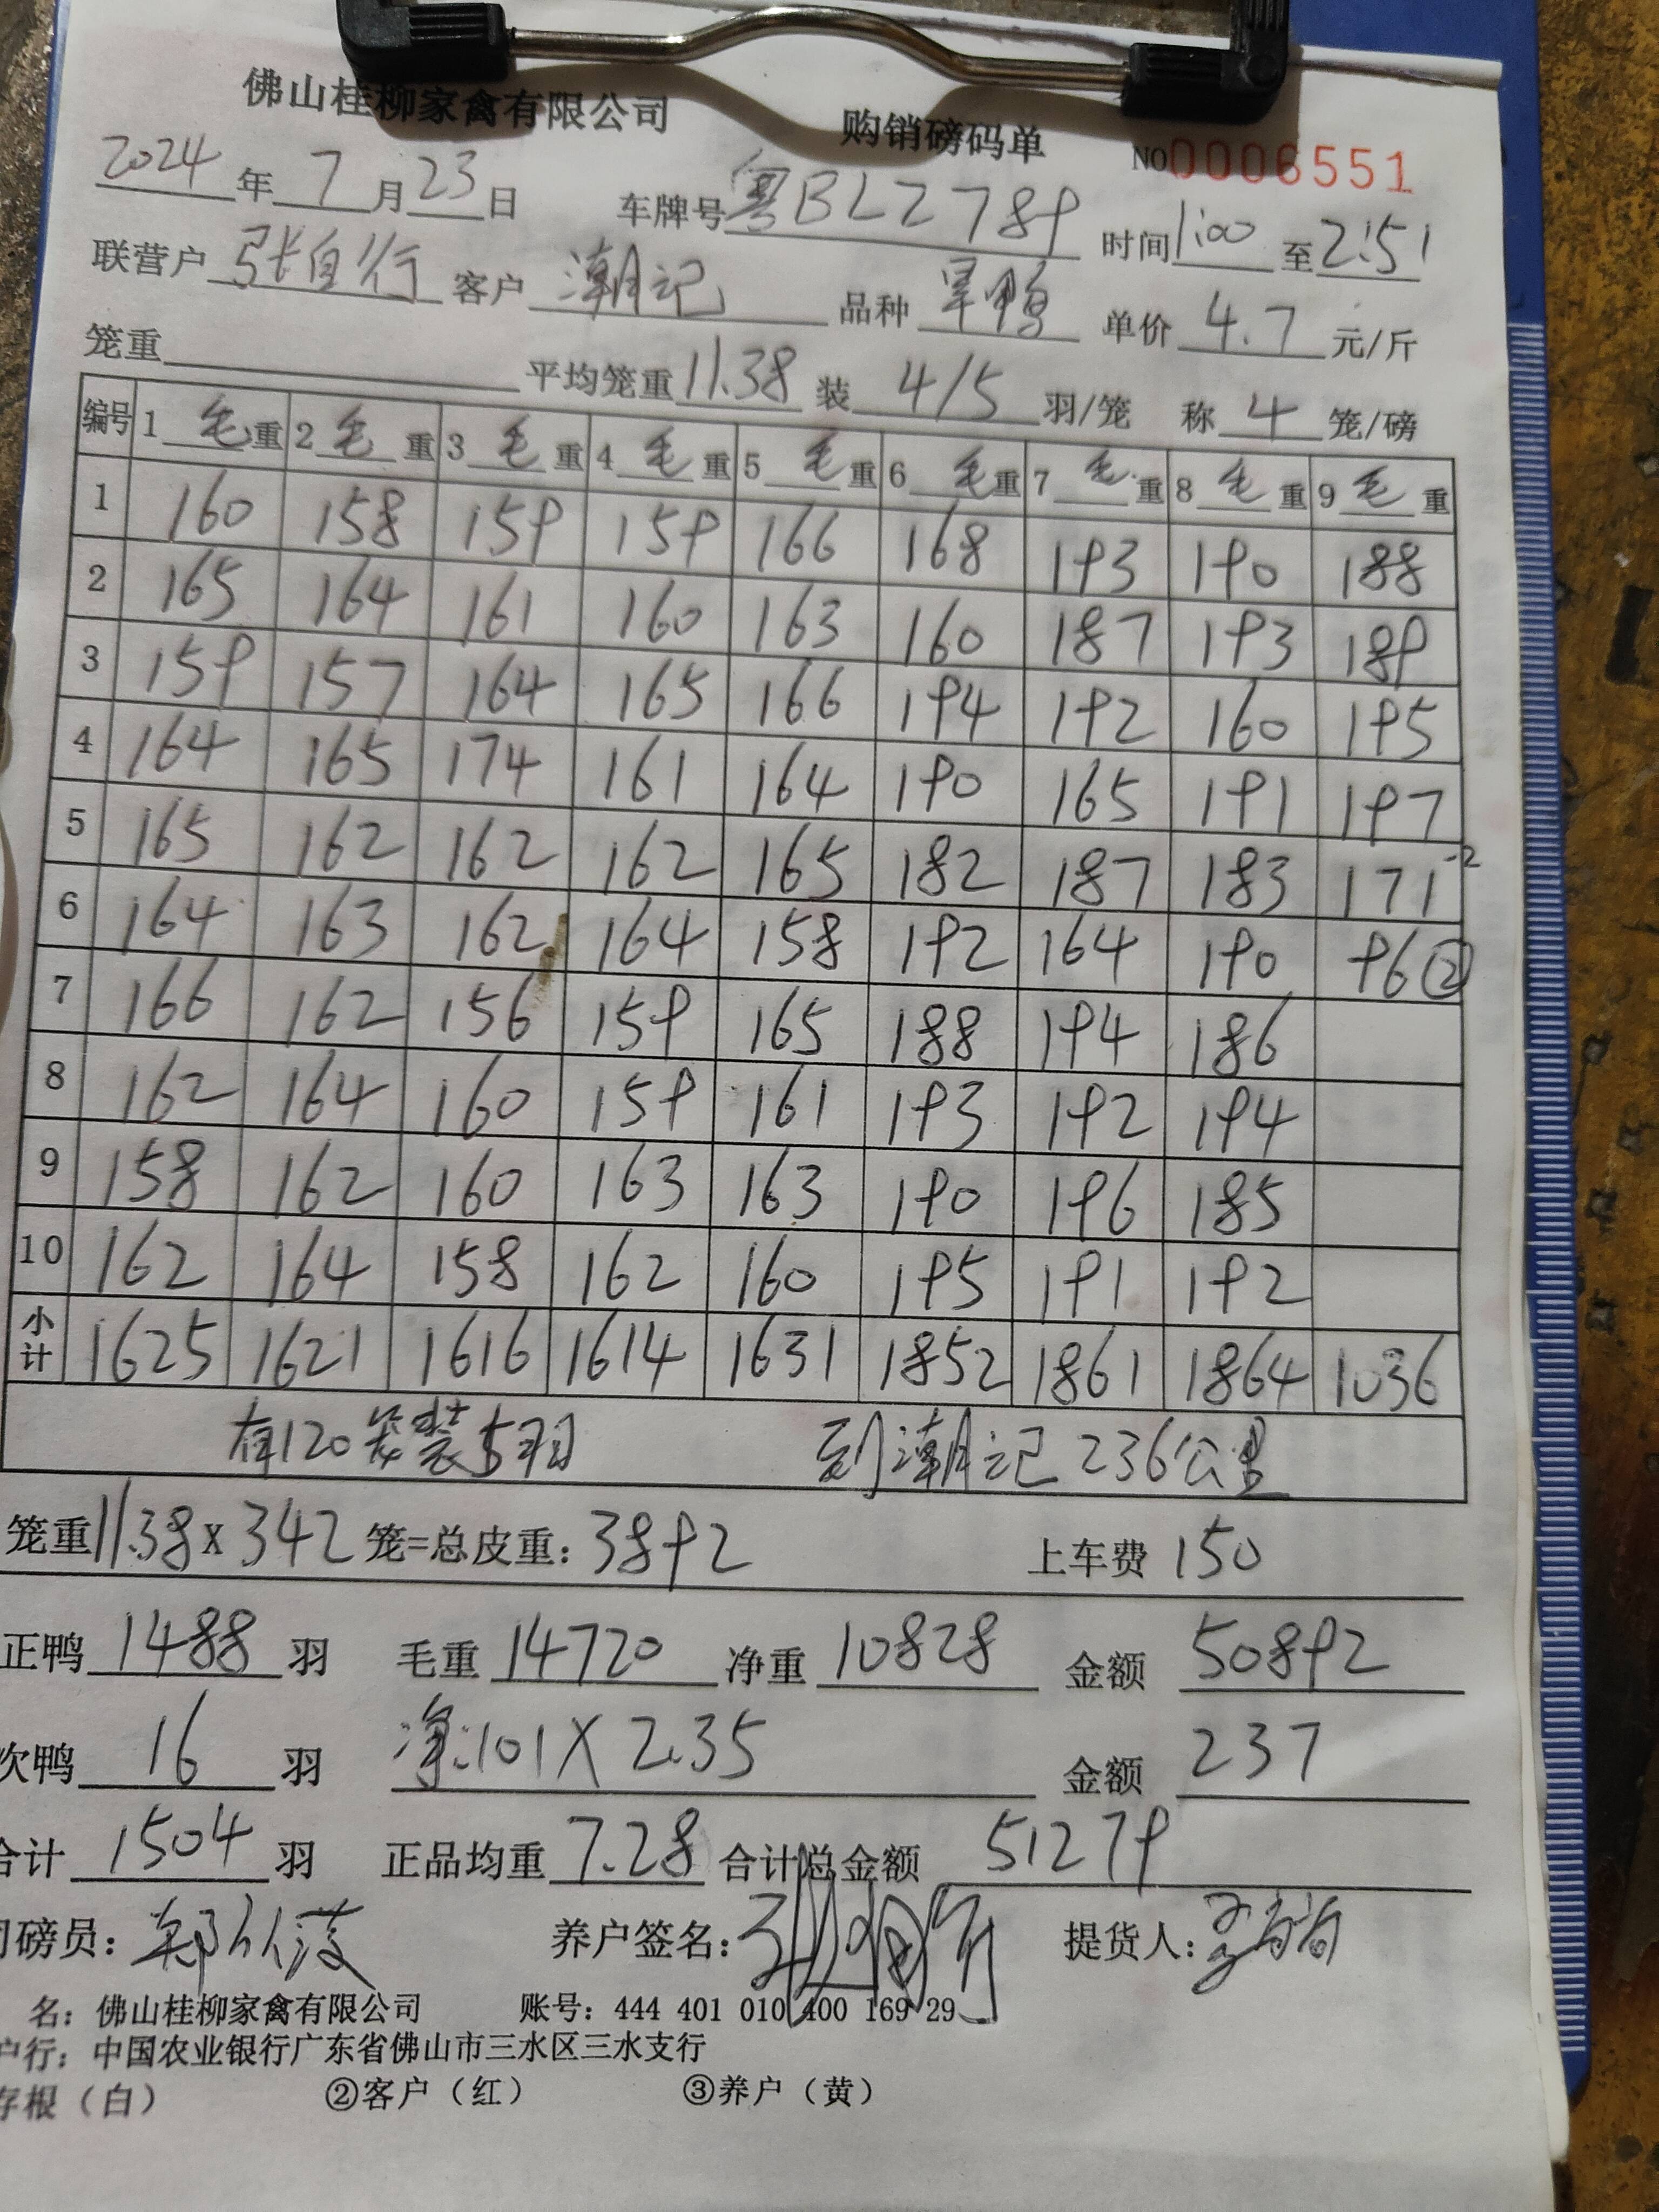 佛山桂柳家禽有限公司 购销磅码单 NO 0006551
2024 年 7 月 23 日 车牌号 粤BLZ7789 时间 1:00 至 2:51
联营户 张自行 客户 潮记 品种 旱鸭 单价 4.7 元/斤
笼重 平均笼重 11.38 装 4/5 羽/笼 称 4 笼/磅
编号 1 毛 重 2 毛 重 3 毛 重 4 毛 重 5 毛 重 6 毛 重 7 毛 重 8 毛 重 9 毛 重
1 160 158 159 159 166 168 193 190 188
2 165 164 161 160 163 160 187 193 189
3 159 157 164 165 166 194 192 160 195
4 164 165 174 161 164 190 165 191 197
5 165 162 162 162 165 182 187 183 171 -2
6 164 163 162 164 158 192 164 190 96 ②
7 166 162 156 159 165 188 194 186
8 162 164 160 159 161 193 192 194
9 158 162 160 163 163 190 196 185
10 162 164 158 162 160 195 191 192
小计 1625 1621 1616 1614 1631 1852 1861 1864 1036
有120笼装5羽 到潮记236公里
笼重 11.38 x 342 笼=总皮重: 3892 上车费 150
正鸭 1488 羽 毛重 14720 净重 10828 金额 50892
次鸭 16 羽 净:101X2.35 金额 237
合计 1504 羽 正品均重 7.28 合计总金额 51279
司磅员: 养户签名: 提货人:
名: 佛山桂柳家禽有限公司 账号: 444 401 010 400 169 29
户行: 中国农业银行广东省佛山市三水区三水支行
存根（白） ②客户（红） ③养户（黄）